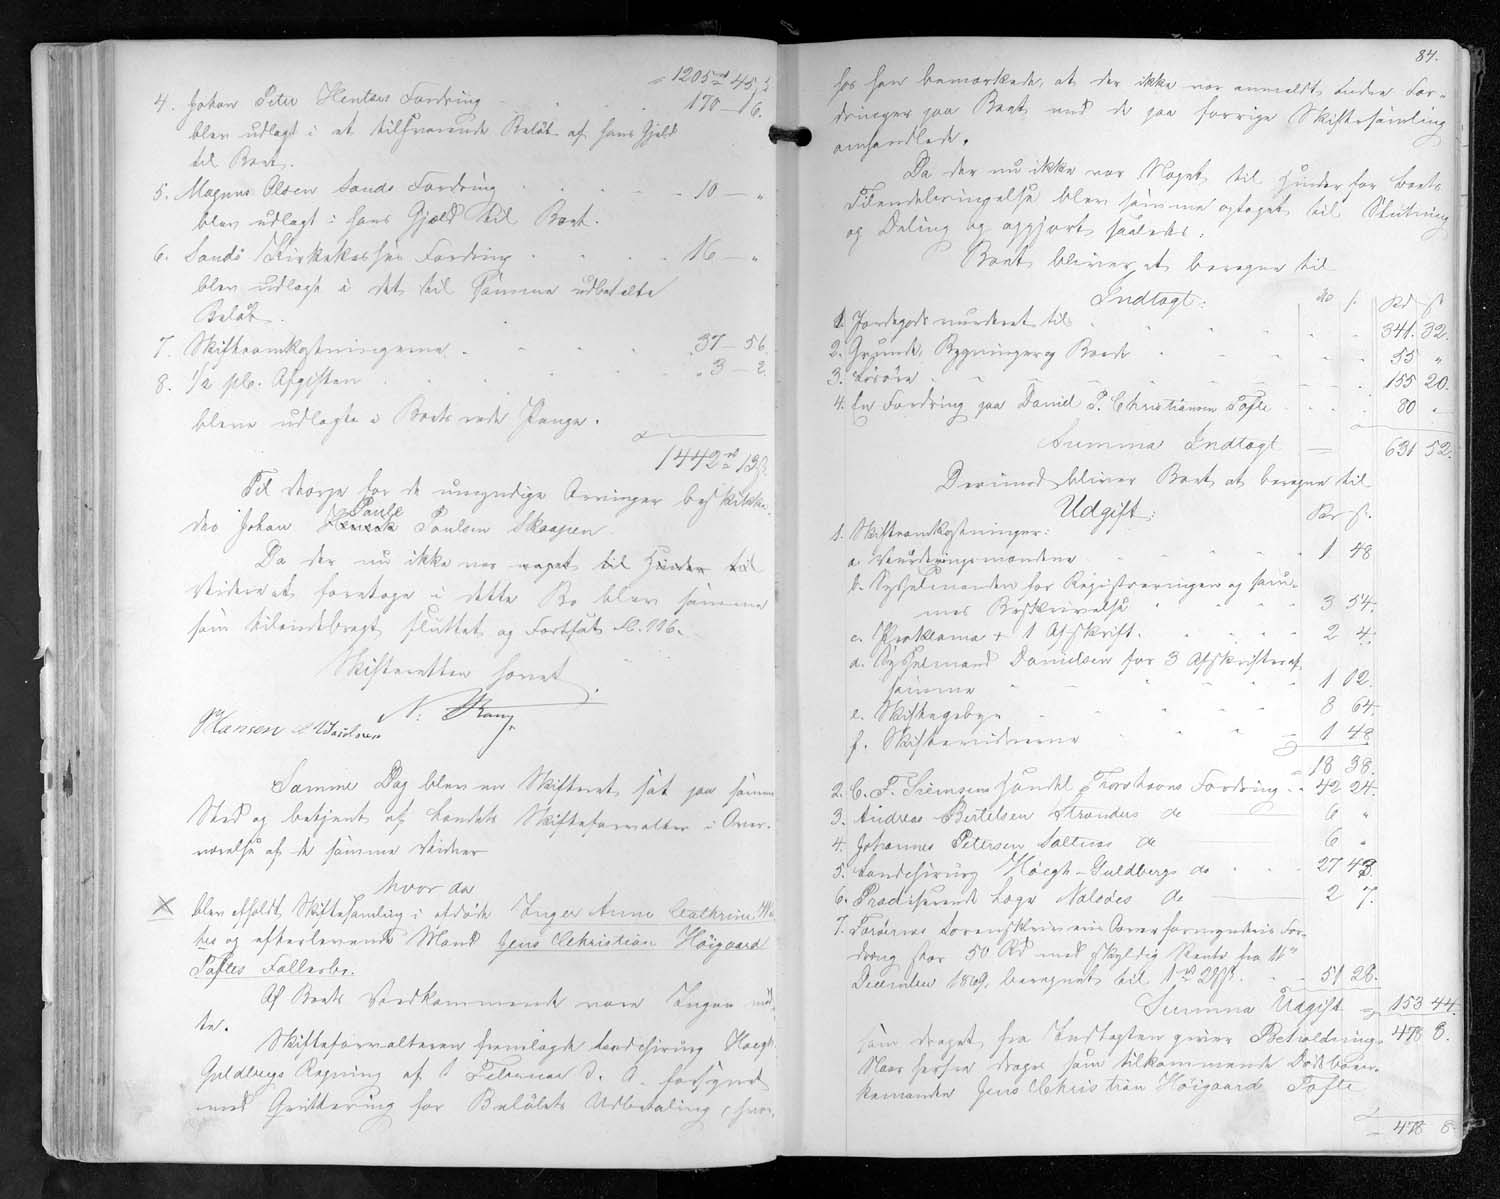 1205 rd 45 ß
4. Johan Peter Hentzes Fordring 170 — 16.
blev udlagt i et tilsvarende Beløb af hans Gjæld
til Boet.
5. Magnus Olsen Sands Fordring 10 — "
blev udlagt i hans Gjæld til Boet.
6. Sands Kirkekasses Fordring 16 — "
blev udlagt i det til samme udbetalte
Beløb.
7. Skifteomkostningerne 37 — 56.
8. 1/2 pCt. Afgiften 3 — 2.
bleve udlagte i Boets rede Penge.
1442 rd 13 ß.
Til Værge for de umyndige Arvinger beskikke-
des Johan Poulsen Skaapen.
Da der nu ikke var noget til Hinder til
videre at foretage i dette Bo blev samme
som tilendebragt sluttet og Fortsat S. 116.
Skifteretten hævet.
Samme Dag blev en Skifteret sat paa samme
Sted og betjent af Landets Skifteforvalter i Over-
værelse af de samme Vidner
hvor da
blev afholdt Skiftesamling i afdøde Inger Anna Cathrine
og efterlevende Mand Jens Christian Høigaard
Toftes Fællesbo.
Af Boets Vedkommende vare Ingen mød-
te.
Skifteforvalteren fremlagde Landchirurg Høegh-
Guldbergs Regning af 1 Februar d. A. forsynet
med Qvittering for Beløbets Udbetaling, hvor-
84.
hos han bemærkede, at der ikke var anmeldt andre For-
dringer paa Boet end de paa forrige Skiftesamling
omhandlede.
Da der nu ikke var Noget til Hinder for Boets
Tilendebringelse blev samme optaget til Slutning
og Deling og opgjort saaledes:
Boet bliver at beregne til
Indtægt:
Rd ß
1. Jordegods vurderet til 341. 32.
2. Grund, Bygninger og Baad 55 "
3. Løsøre 155 20.
4. En Fordring paa Daniel P. Christiansen Tofte 80 "
Summa Indtægt — 631 52.
Derimod bliver Boet at beregne til
Udgift:
Rd ß.
1. Skifteomkostninger:
a. Vurderingsmændene 1 48
b. Sysselmanden for Registreringen og sam-
mes Beskrivelse 3 54.
c. Proklama + 1 Afskrift. 2 4.
d. Sysselmand Danielsen for 3 Afskrifter af
samme 1 02.
e. Skiftegebyr 8 64.
f. Skiftevidnerne 1 48
18 38.
2. C. F. Siemsens Handel Thorshavns Fordring 42 24.
3. Andreas Bertelsen Strendes do 6 "
4. Johannes Petersen Saltnes do 6 "
5. Landchirurg Høegh-Guldbergs do 27 43.
6. Practiserende Læge Nolsøes do 2 7.
7. Færøernes Sorenskriveris Overformynderis For-
dring stor 50 Rd med skyldig Rente fra 11te
December 1869, beregnet til 1 rd 28 ß. 51 28.
Summa Udgift 153 44.
som draget fra Indtægten giver Beholdning 478 8.
Naar herfra drages som tilkommende
Jens Christian Høigaard Tofte
478 8.